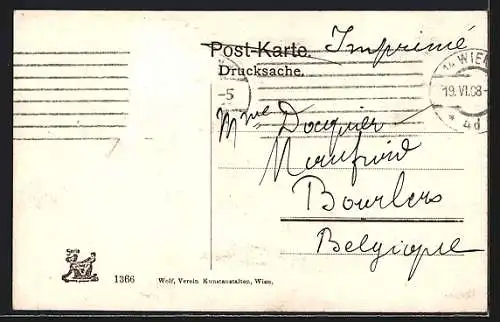 Post-Karte. Imprimé
Drucksache.
WIEN
-5
19.VI.08-
* 4d
Mme Docquier
Bourlers
Belgique
Serie
1366 Wolf, Verein Kunstanstalten, Wien.